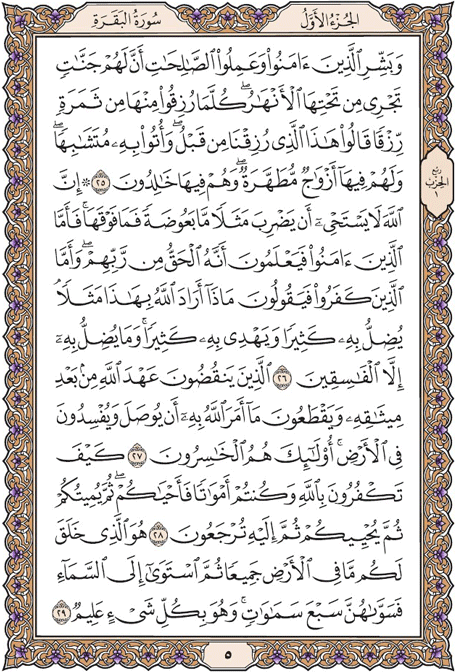 الجُزْءُ الأَوَّلُ
سُورَةُ البَقَرَةِ
وَبَشِّرِ ٱلَّذِينَ ءَامَنُواْ وَعَمِلُواْ ٱلصَّٰلِحَٰتِ أَنَّ لَهُمْ جَنَّٰتٖ
تَجْرِي مِن تَحْتِهَا ٱلْأَنْهَٰرُۖ كُلَّمَا رُزِقُواْ مِنْهَا مِن ثَمَرَةٖ
رِّزْقٗا قَالُواْ هَٰذَا ٱلَّذِي رُزِقْنَا مِن قَبْلُۖ وَأُتُواْ بِهِۦ مُتَشَٰبِهٗاۖ
وَلَهُمْ فِيهَآ أَزْوَٰجٞ مُّطَهَّرَةٞۖ وَهُمْ فِيهَا خَٰلِدُونَ ٢٥ ۞ إِنَّ
ٱللَّهَ لَا يَسْتَحْيِۦٓ أَن يَضْرِبَ مَثَلٗا مَّا بَعُوضَةٗ فَمَا فَوْقَهَاۚ فَأَمَّا
ٱلَّذِينَ ءَامَنُواْ فَيَعْلَمُونَ أَنَّهُ ٱلْحَقُّ مِن رَّبِّهِمْۖ وَأَمَّا
ٱلَّذِينَ كَفَرُواْ فَيَقُولُونَ مَاذَآ أَرَادَ ٱللَّهُ بِهَٰذَا مَثَلٗاۘ
يُضِلُّ بِهِۦ كَثِيرٗا وَيَهْدِي بِهِۦ كَثِيرٗاۚ وَمَا يُضِلُّ بِهِۦٓ
إِلَّا ٱلْفَٰسِقِينَ ٢٦ ٱلَّذِينَ يَنقُضُونَ عَهْدَ ٱللَّهِ مِنۢ بَعْدِ
مِيثَٰقِهِۦ وَيَقْطَعُونَ مَآ أَمَرَ ٱللَّهُ بِهِۦٓ أَن يُوصَلَ وَيُفْسِدُونَ
فِي ٱلْأَرْضِۚ أُوْلَٰٓئِكَ هُمُ ٱلْخَٰسِرُونَ ٢٧ كَيْفَ
تَكْفُرُونَ بِٱللَّهِ وَكُنتُمْ أَمْوَٰتٗا فَأَحْيَٰكُمْۖ ثُمَّ يُمِيتُكُمْ
ثُمَّ يُحْيِيكُمْ ثُمَّ إِلَيْهِ تُرْجَعُونَ ٢٨ هُوَ ٱلَّذِي خَلَقَ
لَكُم مَّا فِي ٱلْأَرْضِ جَمِيعٗا ثُمَّ ٱسْتَوَىٰٓ إِلَى ٱلسَّمَآءِ
فَسَوَّىٰهُنَّ سَبْعَ سَمَٰوَٰتٖۚ وَهُوَ بِكُلِّ شَيْءٍ عَلِيمٞ ٢٩
ربع
الحزب
١
٥